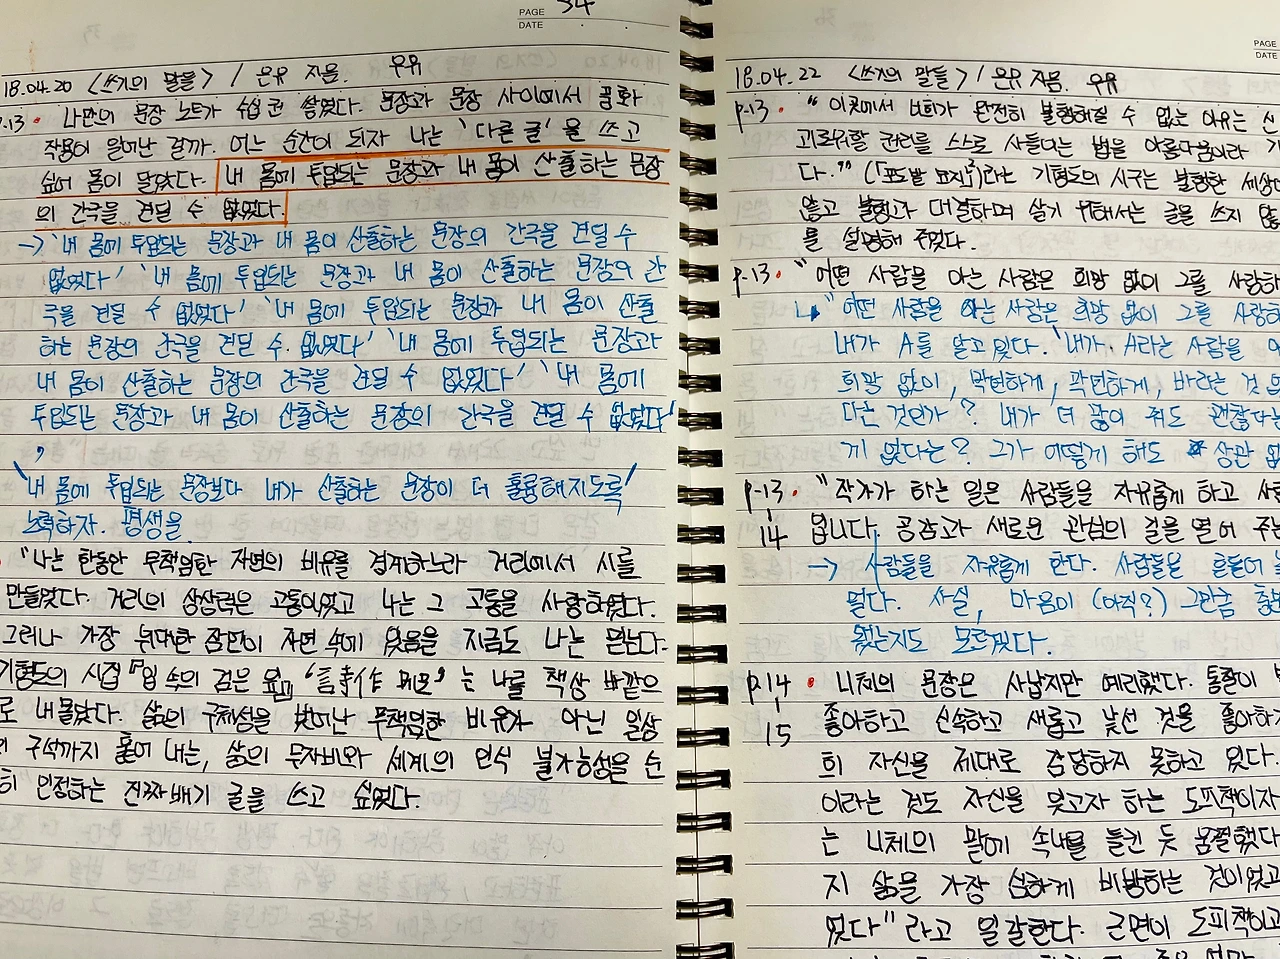 PAGE 34
DATE
18.04.20 <쓰기의 말들> / 은유 지음. 유유
P.13 • 나만의 문장 노트가 수십 권 쌓였다. 문장과 문장 사이에서 공화
작용이 일어난 걸까. 어느 순간이 되자 나는 '다른 글'을 쓰고
싶어 몸이 달았다. 내 몸에 투입되는 문장과 내 몸이 산출하는 문장
의 간극을 견딜 수 없었다.
→ '내 몸에 투입되는 문장과 내 몸이 산출하는 문장의 간극을 견딜 수
없었다' '내 몸에 투입되는 문장과 내 몸이 산출하는 문장의 간
극을 견딜 수 없었다' '내 몸에 투입되는 문장과 내 몸이 산출
하는 문장의 간극을 견딜 수 없었다' '내 몸에 투입되는 문장과
내 몸이 산출하는 문장의 간극을 견딜 수 없었다' '내 몸에
투입되는 문장과 내 몸이 산출하는 문장의 간극을 견딜 수 없었다'
,
'내 몸에 투입되는 문장보다 내가 산출하는 문장이 더 훌륭해지도록'
노력하자. 평생을.
"나는 한동안 무책임한 자연의 비유를 경계하느라 거리에서 시를
만들었다. 거리의 상상력은 고통이었고 나는 그 고통을 사랑하였다.
그러나 가장 위대한 잠언이 자연 속에 있음을 지금도 나는 믿는다.
기형도의 시집 『입 속의 검은 잎』 '詩作 메모'는 나를 책상 바깥으
로 내몰았다. 삶의 구체성을 벗어난 무책임한 비유가 아닌 일상
의 구석까지 훑어 내는, 삶의 무자비와 세계의 인식 불가능성을 순
히 인정하는 진짜배기 글을 쓰고 싶었다.
PAGE
DATE
18.04.22 <쓰기의 말들> / 은유 지음. 유유
P.13 • "이곳에서 너희가 완전히 불행해질 수 없는 이유는 신
괴로워할 권리를 스스로 사들이는 법을 아름다움이라
다."" (「포도밭 묘지2」)라는 기형도의 시구는 불행한 세상
않고 불행과 대결하며 살기 위해서는 글을 쓰지 않
를 설명해 주었다.
P.13 • "어떤 사람을 아는 사람은 희망 없이 그를 사랑하
↳ "어떤 사람을 아는 사람은 희망 없이 그를 사랑하
내가 A를 알고 있다. '내가 A라는 사람을
희망 없이, 막연하게, 곽연하게, 바라는 것
다는 것인가? 내가 더 많이 줘도 괜찮다는
게 없다는? 그가 어떻게 해도 상관 없
P.13 • "작가가 하는 일은 사람들을 자유롭게 하고
14 입니다. 공감과 새로운 관심의 길을 열어 주는
→ 사람들을 자유롭게 한다. 사람들을 흔들어
멀다. 사실, 마음이 (아직?) 그만큼
했는지도 모르겠다.
P.14 • 니체의 문장은 사납지만 예리했다. 통찰이
15 좋아하고 신속하고 새롭고 낯선 것을 좋아하
희 자신을 제대로 감당하지 못하고 있다.
이라는 것도 자신을 잊고자 하는 도피책이자
는 니체의 말에 속내를 들킨 듯 움찔했다
지 삶을 가장 심하게 비방하는 것이었고
었다"라고 일갈한다. 근면이 도피책이고